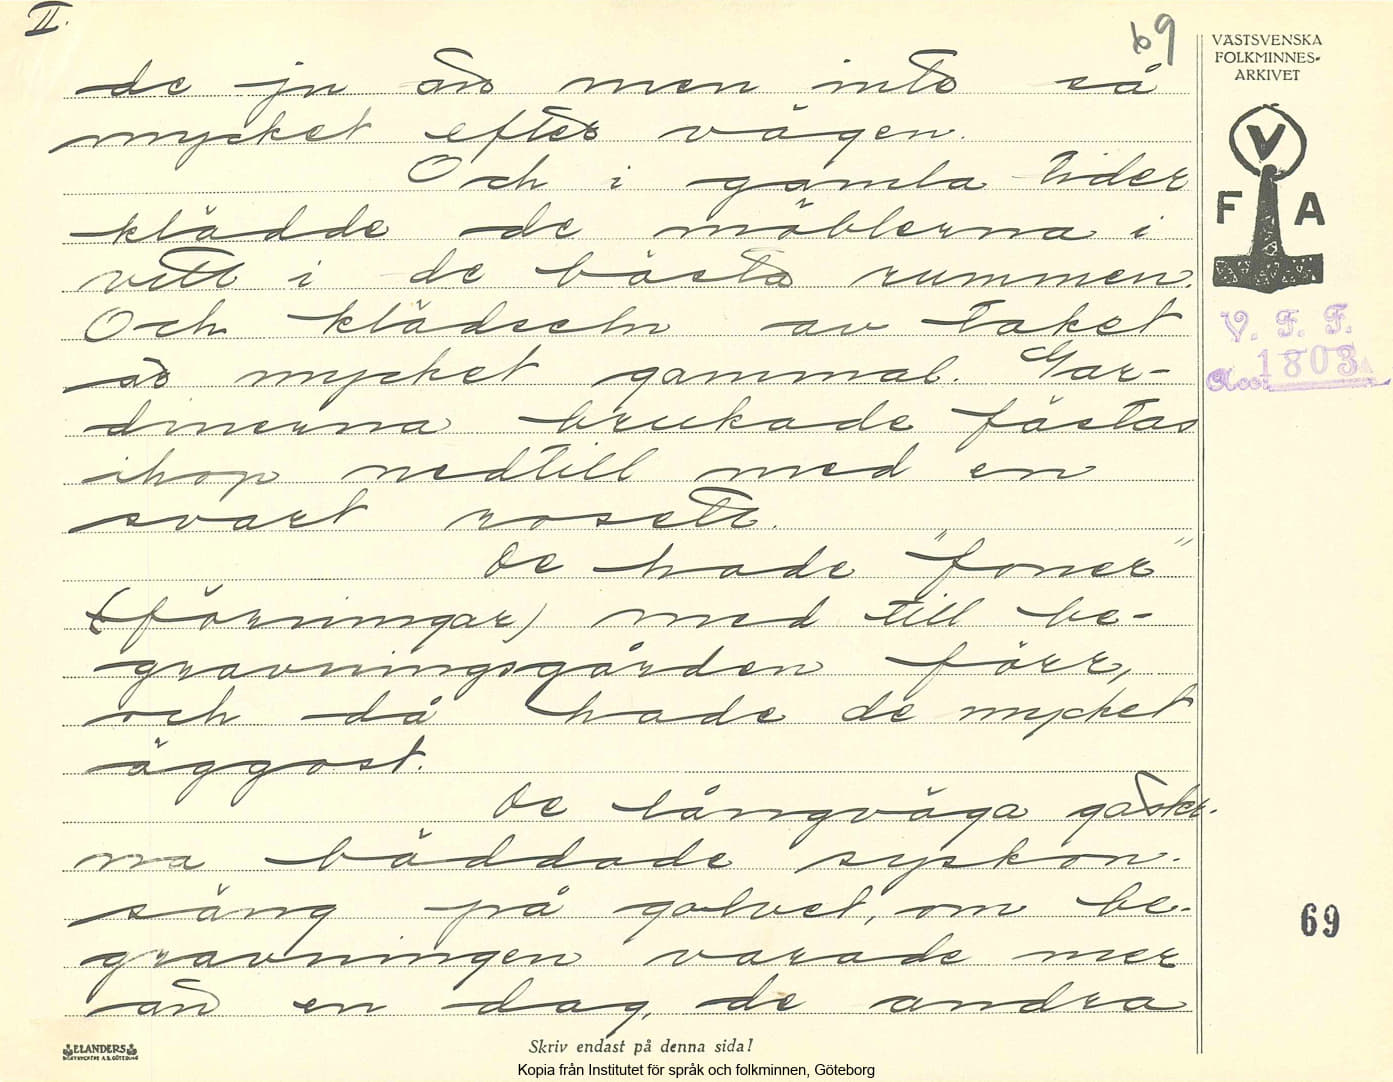 II.
69
VÄSTSVENSKA
FOLKMINNES-
ARKIVET
V
F A
V. F. F.
Acc: 1803
de ju åt men inte så
mycket efter vägen.
Och i gamla tider
klädde de möblerna i
vitt i de bästa rummen.
Och klädseln av taket
är mycket gammal. Gar-
dinerna brukade fästas
ihop nedtill med en
svart rosett.
De hade "foner"
(förningar) med till be-
gravningsgården förr,
och då hade de mycket
äggost.
De långväga gäster-
na bäddade syskon-
säng på golvet, om be-
gravningen varade mer
än en dag, de andra
69
ELANDERS
BOKTRYCKERI A.B. GÖTEBORG
Skriv endast på denna sida!
Kopia från Institutet för språk och folkminnen, Göteborg